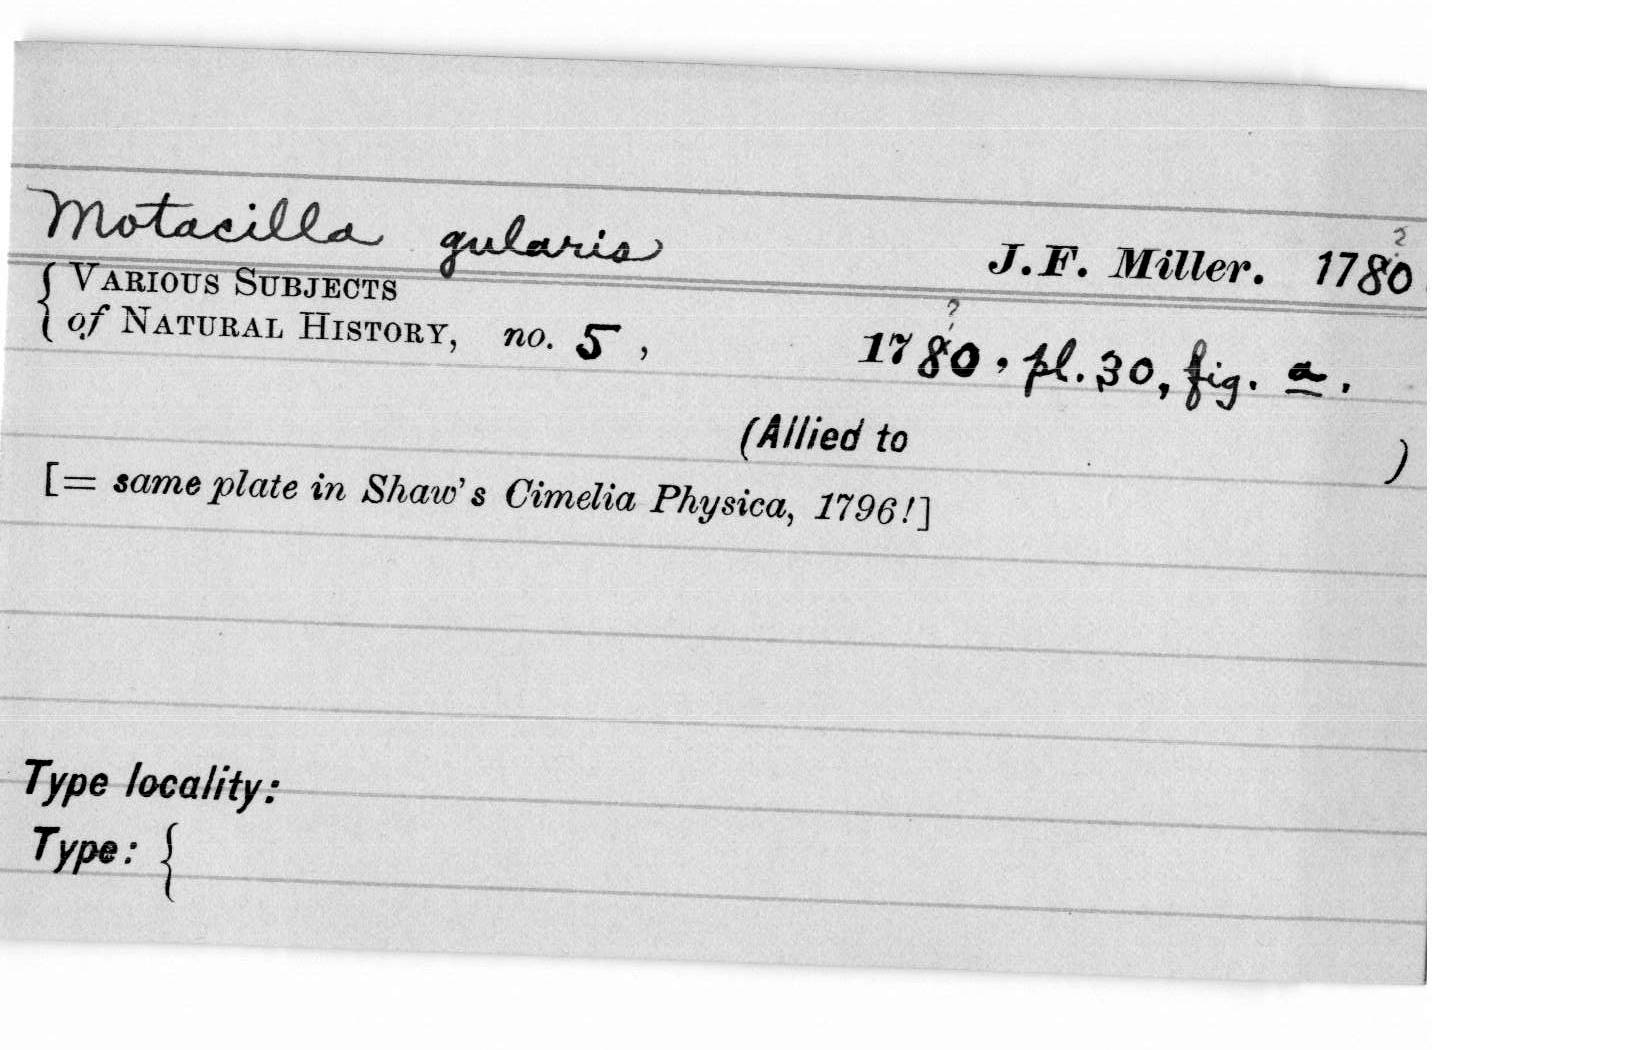 Motacilla gularis J.F. Miller. 1780?
{ VARIOUS SUBJECTS
of NATURAL HISTORY, no. 5, 1780?, pl. 30, fig. a.
(Allied to )
[= same plate in Shaw's Cimelia Physica, 1796!]
Type locality:
Type: {